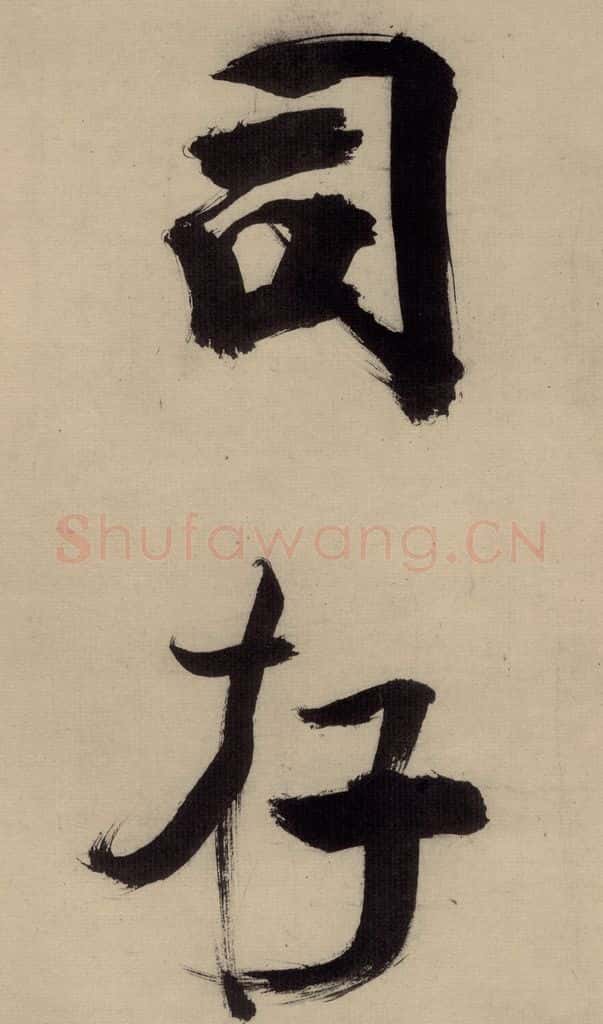 司
Shufawang.CN
存